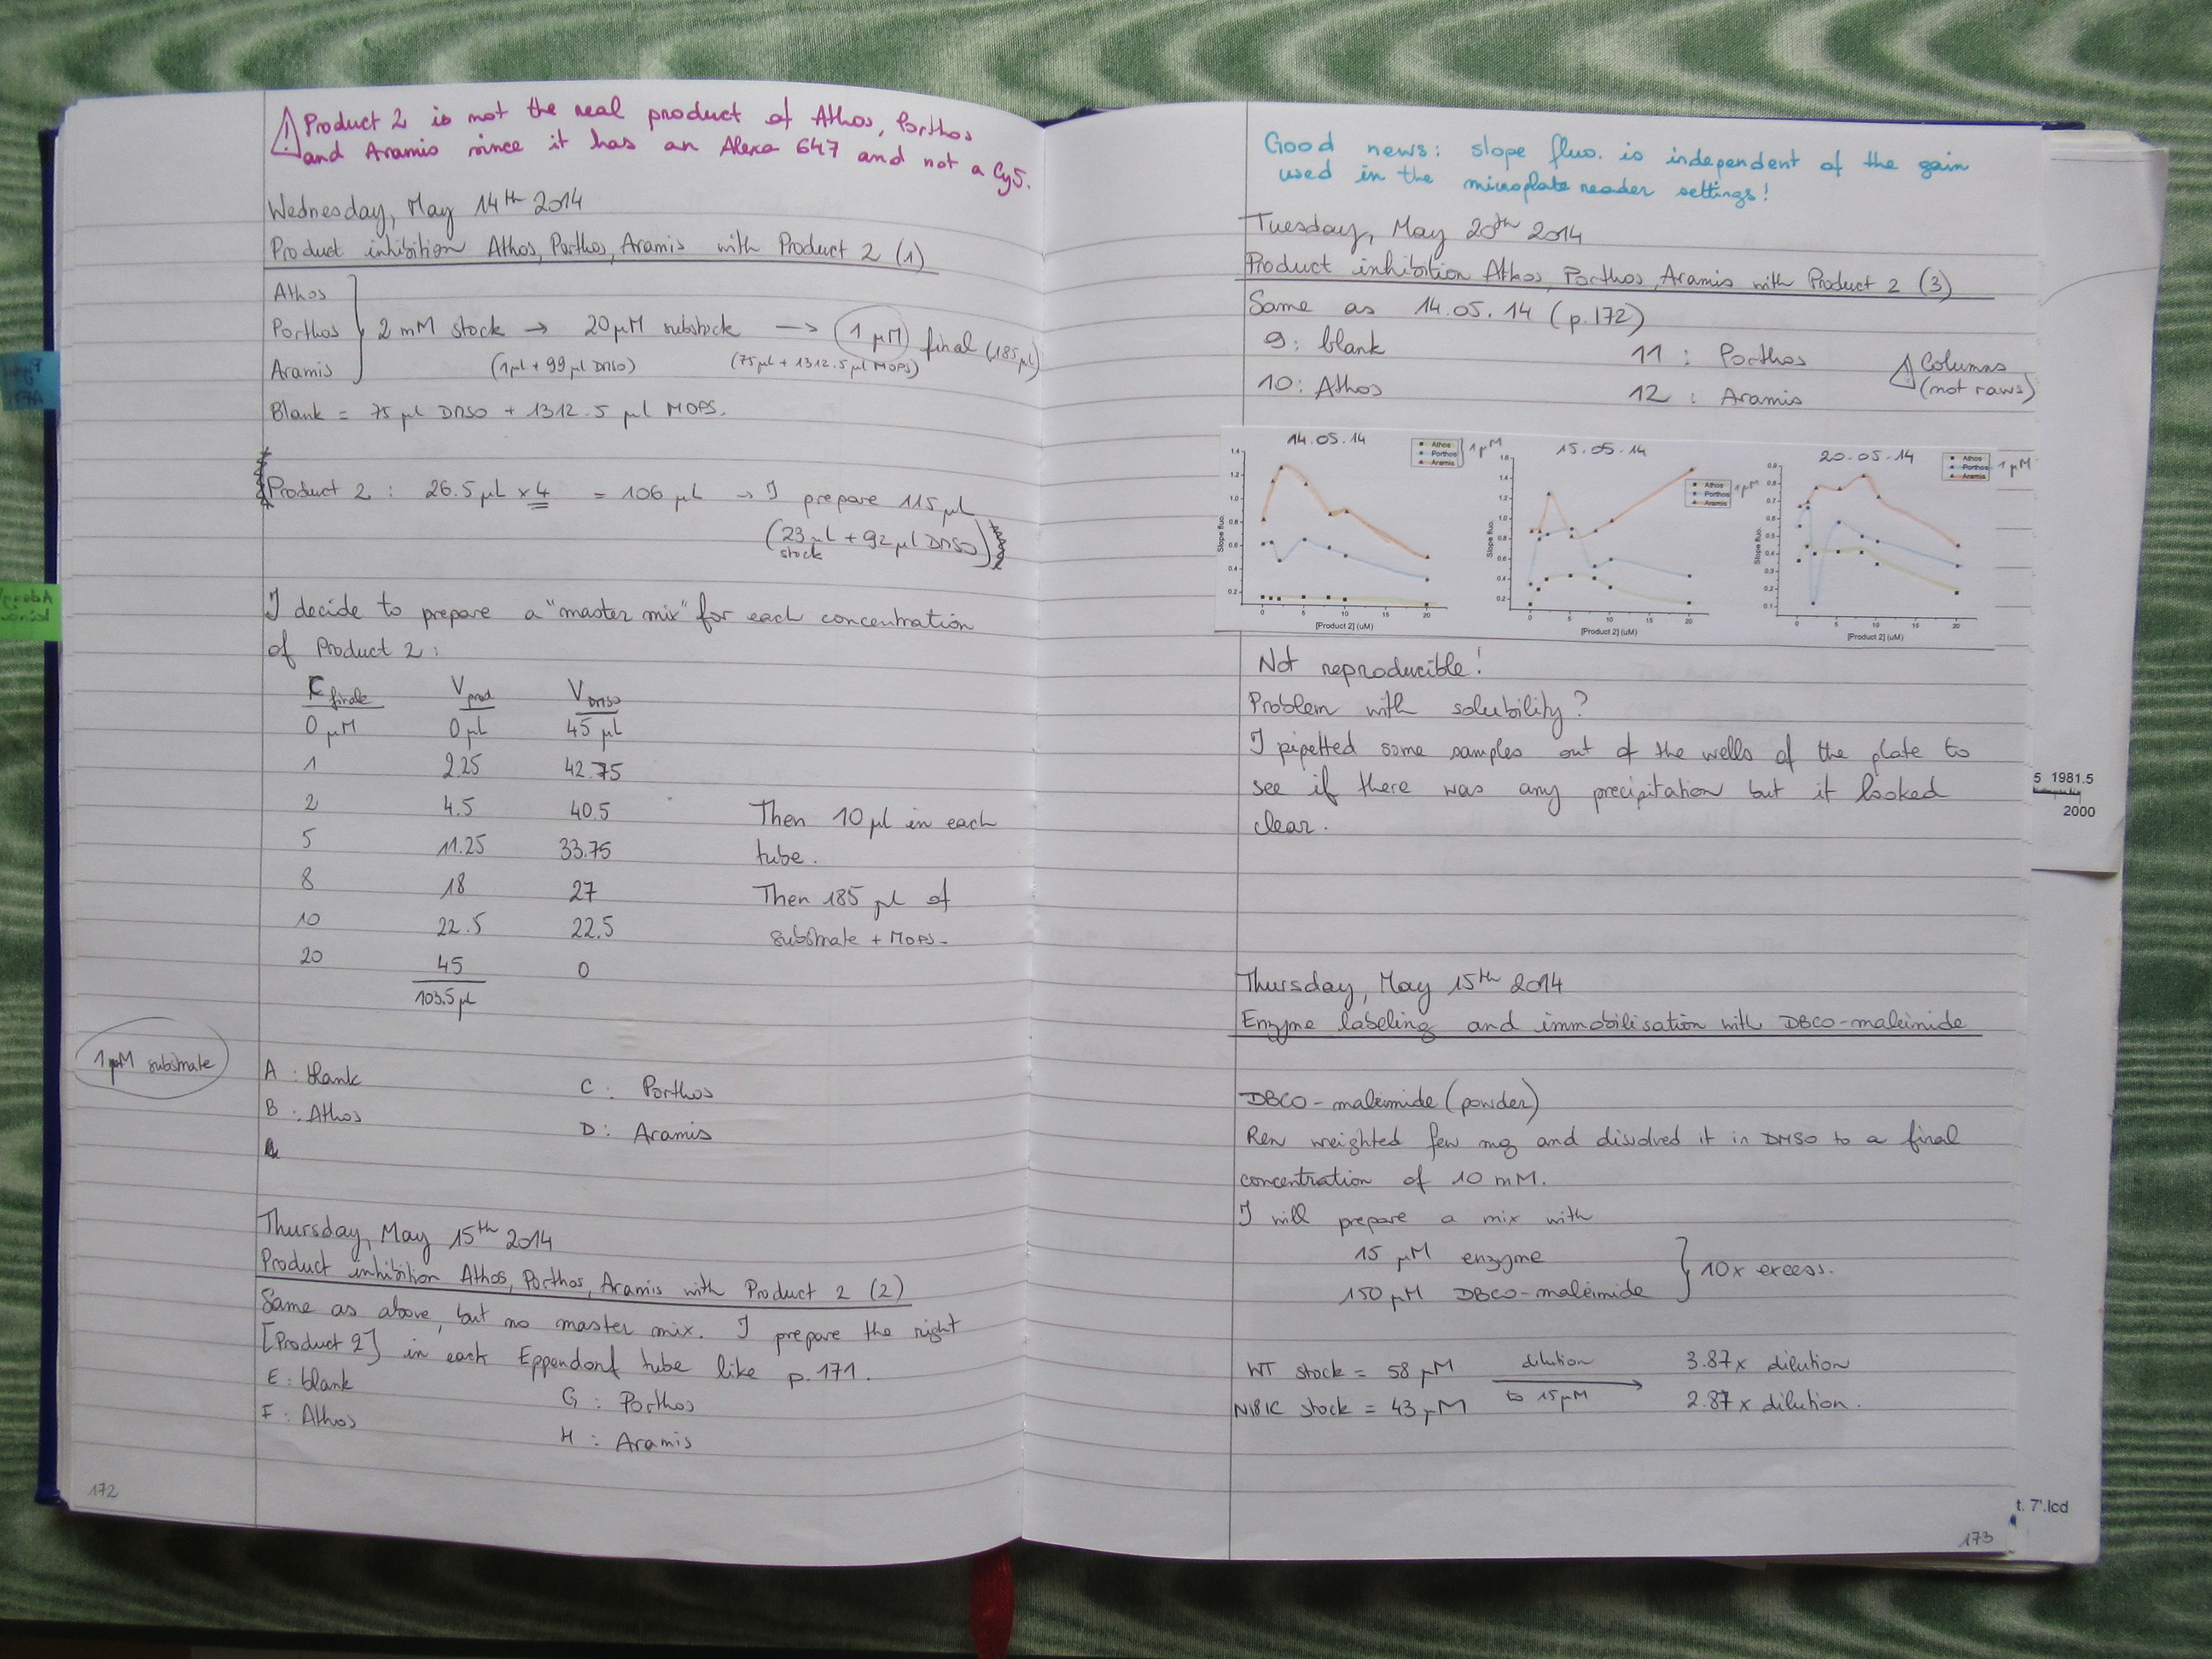 ⚠ Product 2 is not the real product of Athos, Porthos
and Aramis since it has an Alexa 647 and not a Cy5.
Wednesday, May 14th 2014
Product inhibition Athos, Porthos, Aramis with Product 2 (1)
Athos
Porthos 2 mM stock → 20 µM substock → 1 µM final (185 µl)
(1µl + 99 µl DMSO) (75µl + 1312.5 µl MOPS)
Aramis
Blank = 75 µl DMSO + 1312.5 µl MOPS.
Product 2 : 26.5 µL x 4 = 106 µL → I prepare 115 µL
(23 µL + 92 µl DMSO)
stock
I decide to prepare a "master mix" for each concentration
of Product 2 :
C finale V prod V DMSO
0 µM 0 µL 45 µL
1 2.25 42.75
2 4.5 40.5
5 11.25 33.75
8 18 27
10 22.5 22.5
20 45 0
103.5 µL
Then 10 µl in each
tube.
Then 185 µl of
substrate + MOPS.
1 µM substrate
A : blank C : Porthos
B : Athos D : Aramis
Thursday, May 15th 2014
Product inhibition Athos, Porthos, Aramis with Product 2 (2)
Same as above, but no master mix. I prepare the right
[Product 2] in each Eppendorf tube like p.171.
E : blank G : Porthos
F : Athos H : Aramis
172
Good news: slope fluo. is independent of the gain
used in the microplate reader settings!
Tuesday, May 20th 2014
Product inhibition Athos, Porthos, Aramis with Product 2 (3)
Same as 14.05.14 (p.172)
9 : blank 11 : Porthos
10 : Athos 12 : Aramis
⚠ Columns
(not raws)
14.05.14
Athos
Porthos
Aramis
1 µM
1.4
1.2
1.0
0.8
0.6
0.4
0.2
Slope fluo.
0 5 10 15 20
[Product 2] (uM)
15.05.14
Athos
Porthos
Aramis
1 µM
1.6
1.4
1.2
1.0
0.8
0.6
0.4
0.2
Slope fluo.
0 5 10 15 20
[Product 2] (uM)
20.05.14
Athos
Porthos
Aramis
1 µM
0.9
0.8
0.7
0.6
0.5
0.4
0.3
0.2
0.1
Slope fluo.
0 5 10 15 20
[Product 2] (uM)
Not reproducible!
Problem with solubility?
I pipetted some samples out of the wells of the plate to
see if there was any precipitation but it looked
clear.
Thursday, May 15th 2014
Enzyme labeling and immobilisation with DBCO-maleimide
DBCO-maleimide (powder)
Ren weighted few mg and disolved it in DMSO to a final
concentration of 10 mM.
I will prepare a mix with
15 µM enzyme
150 µM DBCO-maleimide
10x excess.
WT stock = 58 µM dilution 3.87 x dilution
N181C stock = 43 µM to 15 µM 2.87 x dilution.
173
5 1981.5
2000
t. 7'.lcd